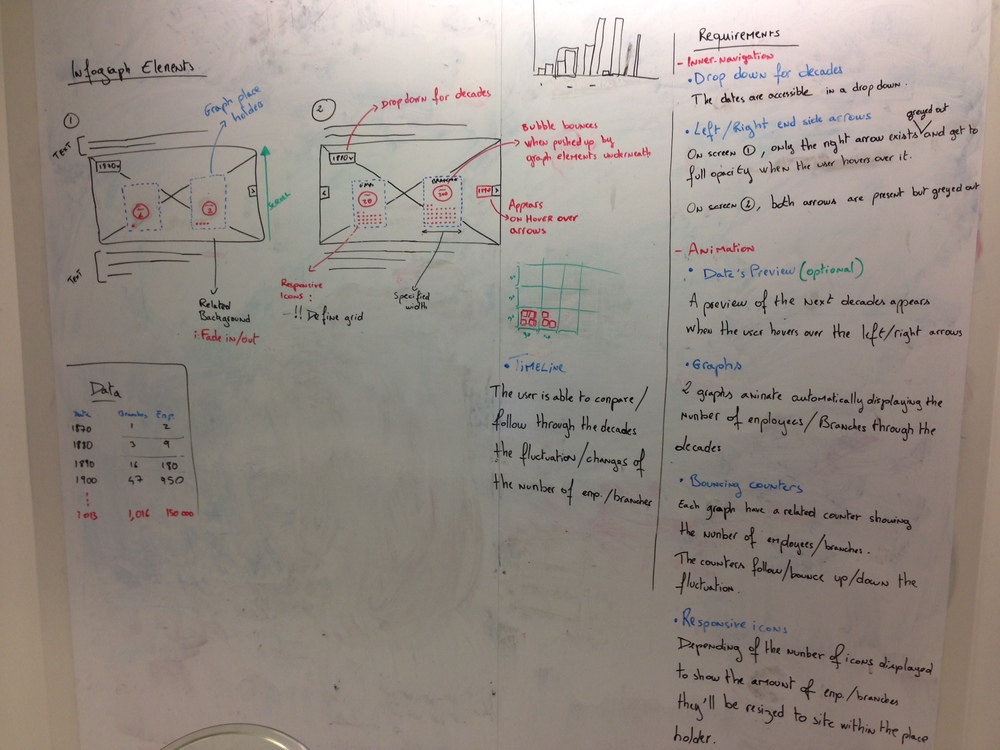 Infograph Elements
①
TEXT
Graph place
holder
1870 v
2
>
SCROLL
TEXT
Related
Background
i: Fade in/out
②
Drop down for decades
1880 v
Bubble bounces
when pushed up by
graph elements underneath
<
EMP.
20
BRANCHES
>
1890
Appears
on Hover over
arrows
Responsive
Icons :
- !! Define grid
Specified
width
Data
Date Branches Emp.
1870 1 2
1880 3 9
1890 16 180
1900 47 950
2013 1,016 130 000
• Timeline
The user is able to compare/
follow through the decades
the fluctuation/changes of
the number of emp./branches
Requirements
- Inner-navigation
• Drop down for decades
The dates are accessible in a drop down.
• Left/Right end side arrows
greyed out
On screen ①, only the right arrow exists and get to
full opacity when the user hovers over it.
On screen ②, both arrows are present but greyed out
- Animation
• Date's Preview (optional)
A preview of the next decades appears
when the user hovers over the left/right arrows
• Graphs
2 graphs animate automatically displaying the
number of employees/Branches through the
decades
• Bouncing counters
Each graph have a related counter showing
the number of employees/branches.
The counters follow/bounce up/down the
fluctuation.
• Responsive icons
Depending of the number of icons displayed
to show the amount of emp./branches
they'll be resized to site within the place
holder.